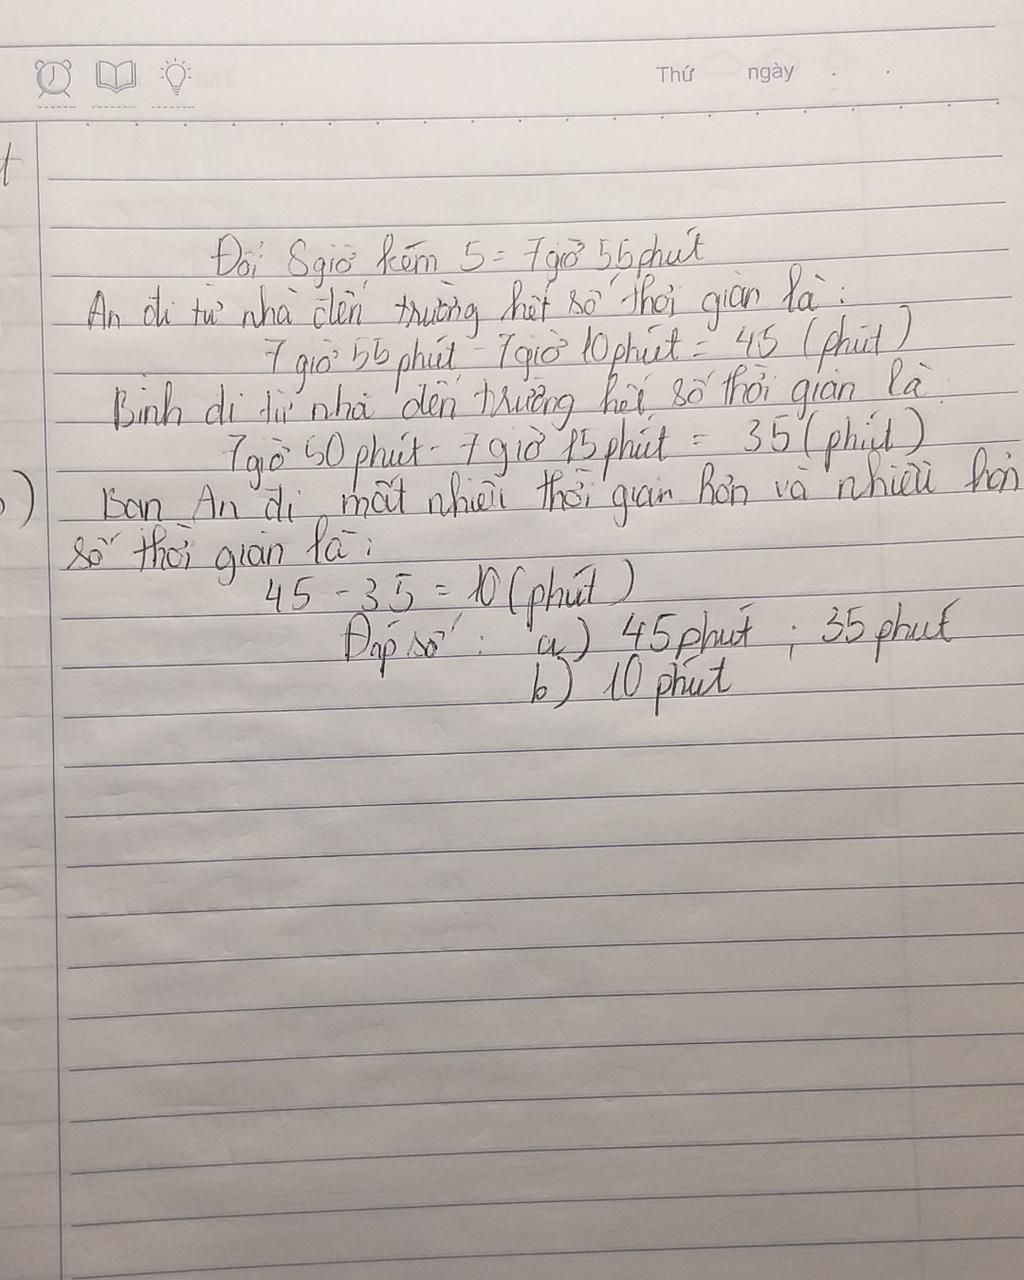 Thứ ngày . .
Đổi 8 giờ kém 5 = 7 giờ 55 phút
An đi từ nhà đến trường hết số thời gian là :
7 giờ 55 phút - 7 giờ 10 phút = 45 (phút)
Bình đi từ nhà đến trường hết số thời gian là
7 giờ 50 phút - 7 giờ 15 phút = 35 (phút)
) Bạn An đi mất nhiều thời gian hơn và nhiều hơn
số thời gian là :
45 - 35 = 10 (phút)
Đáp số : a) 45 phút ; 35 phút
b) 10 phút